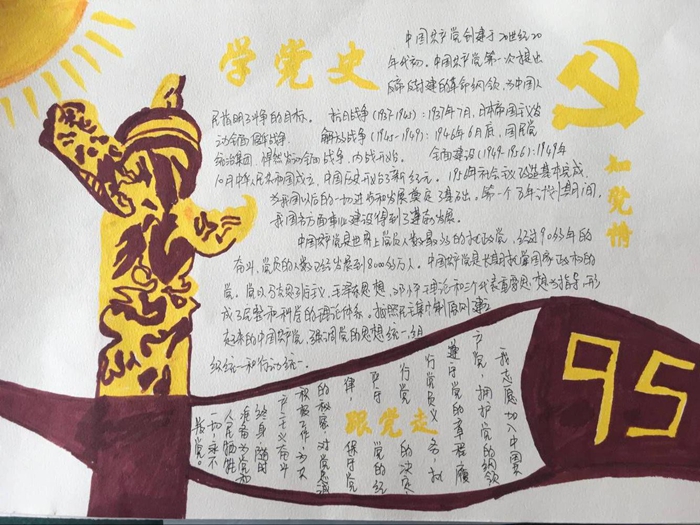 学党史
中国共产党创建于20世纪20
年代初。中国共产党第一次提出
反帝反封建的革命纲领,为中国人
民指明了斗争的目标。 抗日战争(1937-1945):1937年7月,日本帝国主义发
动全面侵华战争. 解放战争(1945-1949):1946年6月后,国民党
统治集团 悍然发动全面战争,内战开始。 全面建设(1949-1956):1949年
10月中华人民共和国成立,中国历史开始了新纪元。1956年社会主义改造基本完成,
为我国以后的一切进步和发展奠定了基础。第一个五年计划期间,
我国各方面事业建设得到了蓬勃发展。
中国共产党是世界上党员人数最多的执政党,经过90多年的
奋斗,党员的人数已经发展到8000多万人。中国共产党是长期执掌国家政权的
党。党以马克思列宁主义、毛泽东思想、邓小平理论和三个代表重要思想为指导,形
成了完整和科学的理论体系。按照民主集中制原则建
立起来的中国共产党,强调党的思想统一、组
织统一和行动统一.
知党情
95
跟党走
我志愿加入中国共
产党,拥护党的纲领
遵守党的章程,履
行党员义务,执
行党的决定
严守党的纪
律,保守党
的秘密,对党忠诚
积极工作,为共
产主义奋斗
终身,随时
准备为党和
人民牺牲
一切,永不
叛党。